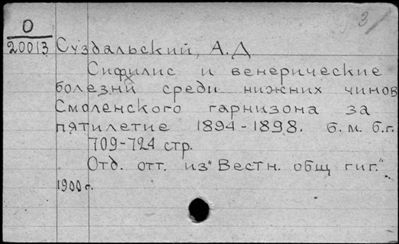 О
20013 Суздальский, А.Д
Сифилис и венерические
болезни среди нижних чинов
Смоленского гарнизона за
пятилетие 1894-1898. б.м. б.г.
709-724 стр.
Отд. отт. из "Вестн. общ гиг."
1900 г.